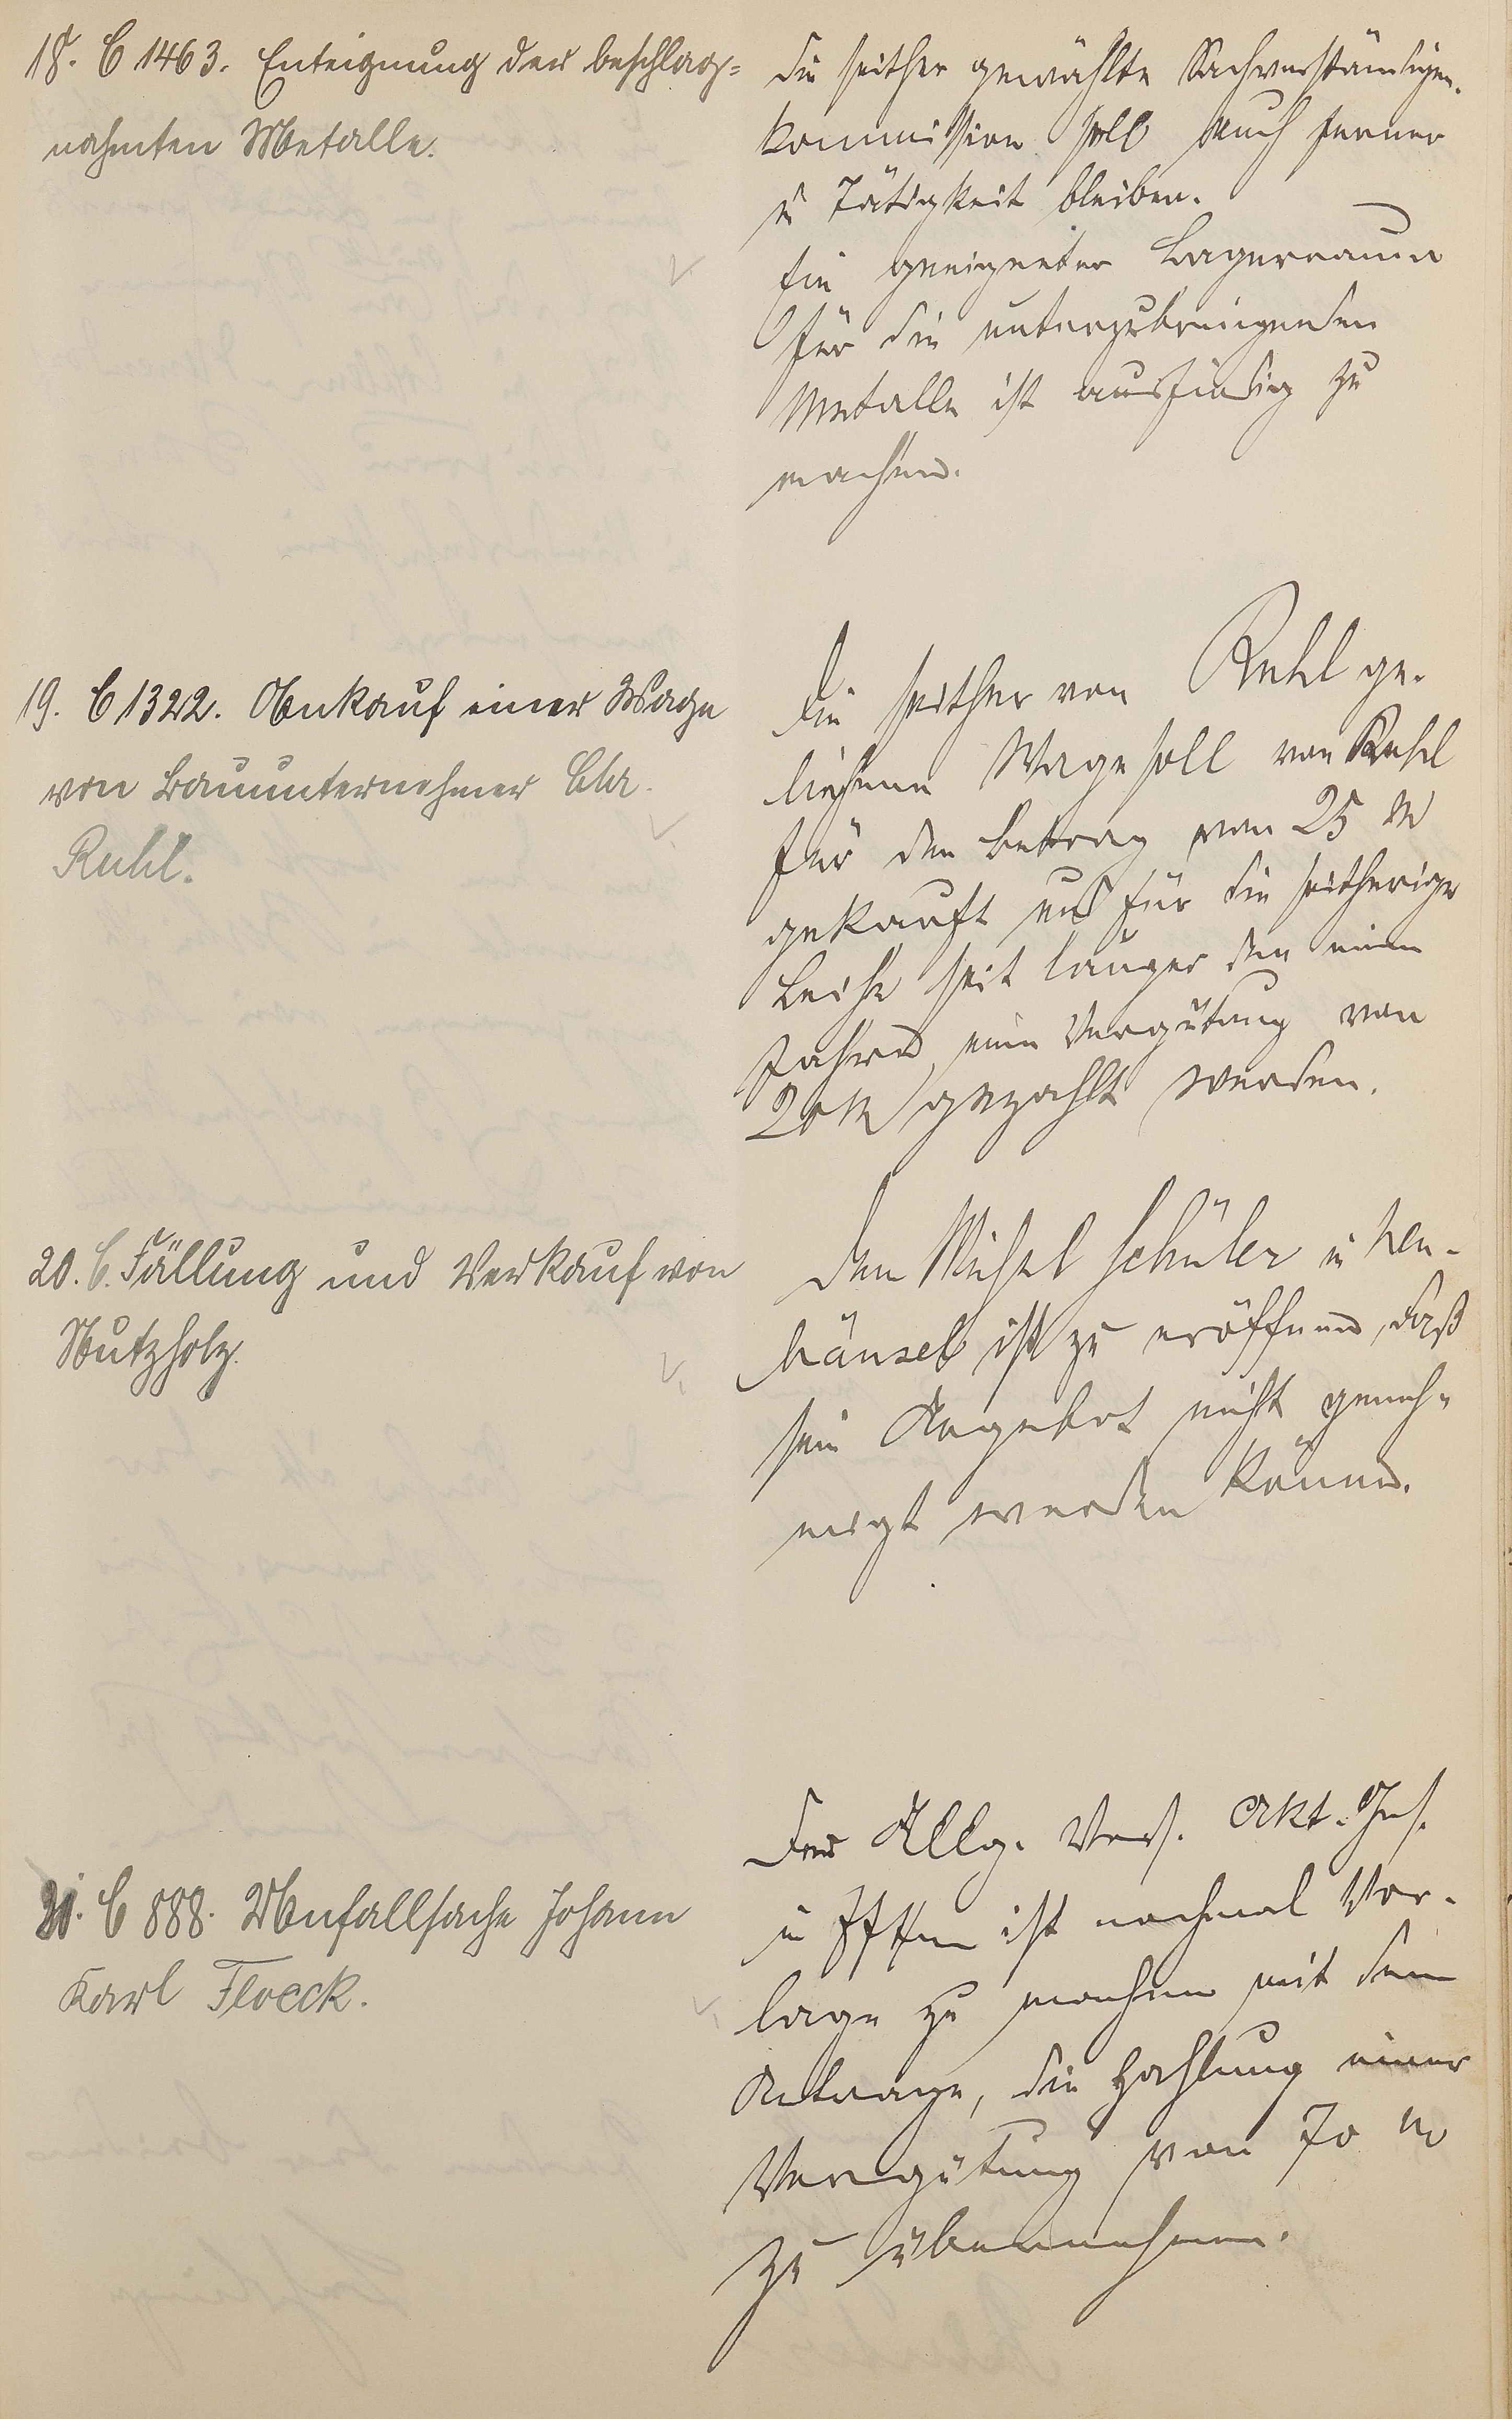 18. C 1463. Enteignung der beschlag=
nahmten Metalle.
die seither gewählte Sachverständigen.
kommission soll auch ferner
in Tätigkeit bleiben.
Ein geeigneter Lagerraum
für die unterzubringenden
Metalle ist ausfindig zu
machen.
19. C 1322. Ankauf einer Wage
von Bauunternehmer Chr.
Ruhl.
Die seither von Ruhl ge-
liehene Wage soll von Ruhl
für den Betrag von 25 M
gekauft und für die seitherige
Leihe seit länger den einem
Jahre eine Vergütung von
20 M gezahlt werden.
20. C. Fällung und Verkauf von
Nutzholz.
Dem Michel Schüler in
hänsel ist zu eröffnen, daß
sein Angebot nicht geneh-
migt werden könne.
21. C 888. Unfallsache Johann
Karl Floeck.
Der Allg. Vers. Akt. Ges.
in ist nochmal Vor-
lage zu machen mit dem
Antrage, die Zahlung einer
Vergütung von 70 M
zu übernehmen.